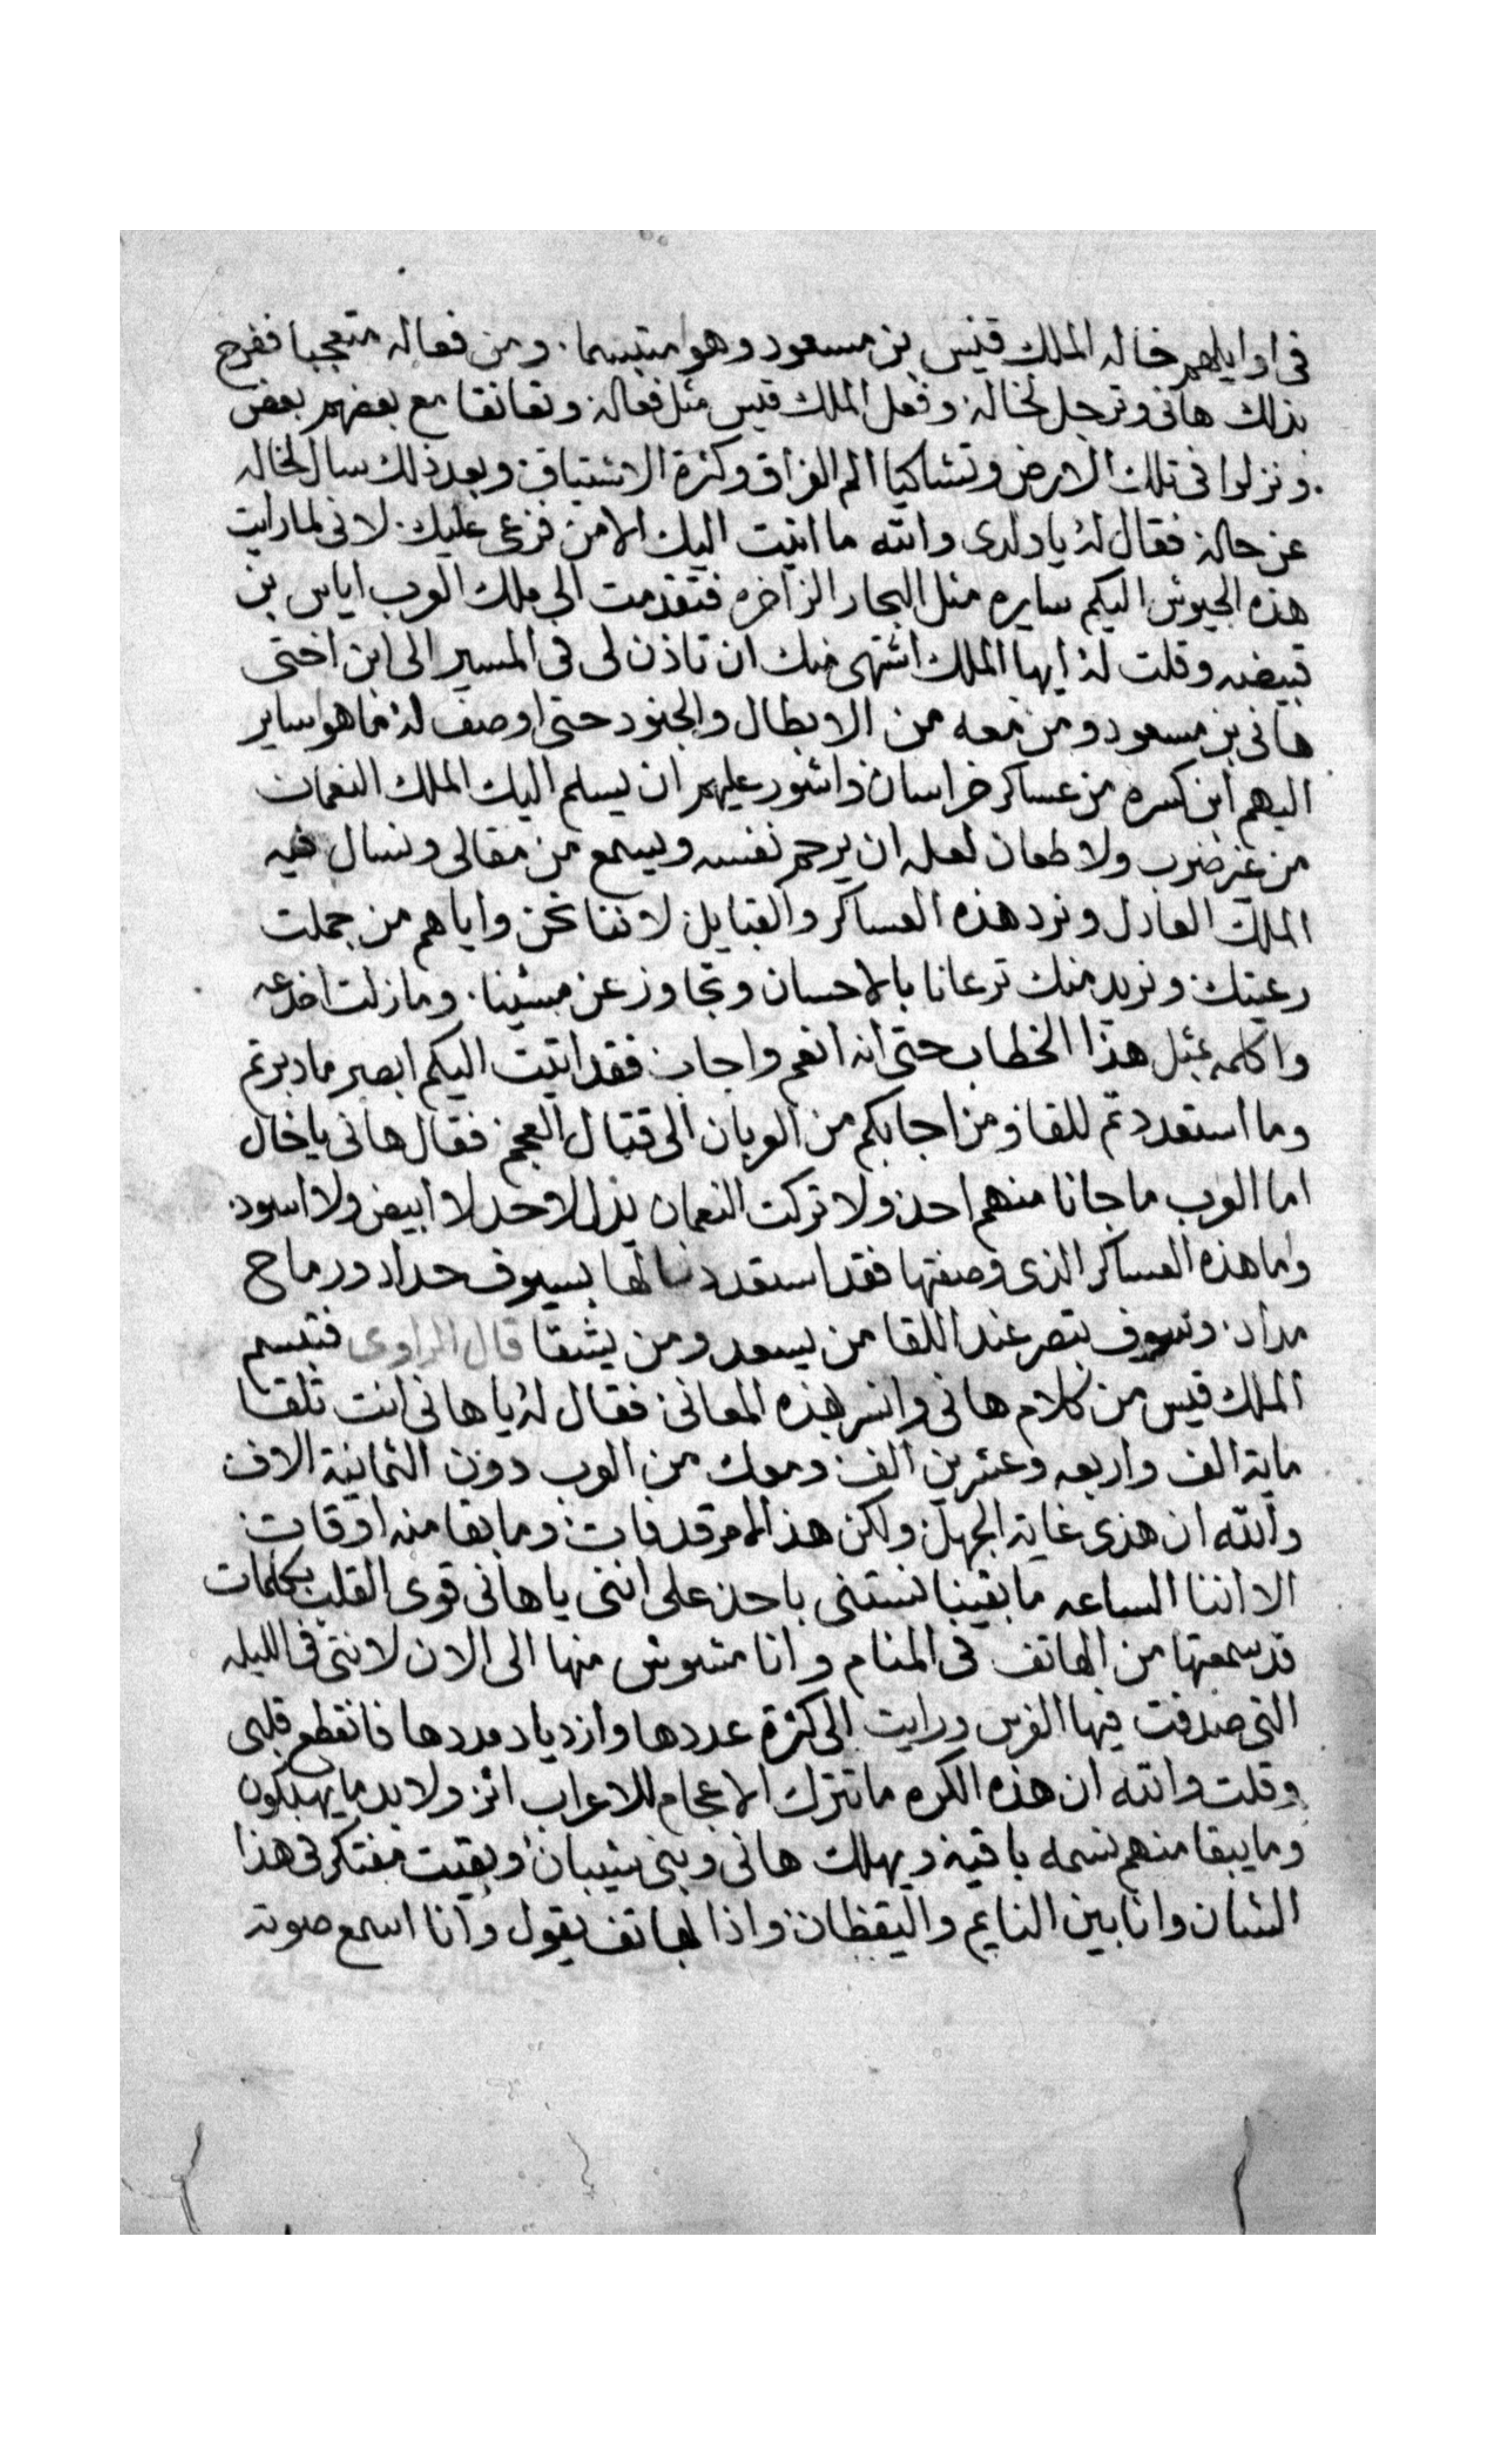 فى اوايلهم خاله الملك قيس بن مسعود وهو متبسما. ومن فعاله متعجبا ففرح
بذلك هانى وترجل لخاله وفعل الملك قيس مثل فعاله وتعانقا مع بعضهم بعض
ونزلوا فى تلك الارض وتشاكيا الم الفراق وكثرة الاشتياق وبعد ذلك سال لخاله
عن حاله فقال له يا ولدى والله ما اتيت اليك الا من فزعى عليك. لانى لما رايت
هذه الجيوش اليكم سايره مثل البحار الزاخره فتقدمت الى ملك العرب اياس بن
قبيضه وقلت له ايها الملك اشتهى منك ان تاذن لى فى المسير الى ابن اختى
هانى بن مسعود ومن معه من الابطال والجنود حتى اوصف له ما هو ساير
اليهم ابن كسره من عساكر خراسان واشور عليهم ان يسلم اليك الملك النعمان
من غير ضرب ولا طعان لعله ان يرحم نفسه ويسمع من مقالى ونسال فيه
الملك العادل ونرد هذه العساكر والقبايل لاننا نحن واياهم من جملت
رعيتك ونريد منك ترعانا بالاحسان وتجاوز عن مسئينا. وما زلت اخدعه
واكلمه بمثل هذا الخطاب حتى انه انعم واجاب فقد اتيت اليكم ابصر ما دبرتم
وما استعددتم للقا ومن اجابكم من العربان الى قتال العجم فقال هانى يا خال
اما العرب ما جانا منهم احد ولا تركت النعمان يذل لاحد لا ابيض ولا اسود.
واما هذه العساكر الذى وصفتها فقد استعددنا لها بسيوف حداد ورماح
مداد. وسوف تبصر عند اللقا من يسعد ومن يشقا قال الراوى فتبسم
الملك قيس من كلام هانى وانسر بهذه المعانى فقال له يا هانى انت تلقا
ماية الف واربعه وعشرين الف ومعك من العرب دون الثمانية الاف
والله ان هذى غاية الجهل ولكن هذا الامر قد فات وما بقا منه اوقات
الا اننا الساعه ما بقينا نستنى باحد على اننى يا هانى قوى القلب بكلمات
قد سمعتها من الهاتف فى المنام وانا مشوش منها الى الان لاننى فى الليله
التى صدفت فيها الفرس ورايت الى كثرة عددها وازدياد مددها فانقطع قلبى
وقلت والله ان هذه الكره ما تترك الاعجام للاعراب اثر ولا بد ما يهلكون
وما يبقا منهم نسمه باقيه ويهلك هانى وبنى شيبان وبقيت مفتكر فى هذا
الشان وانا بين النايم واليقظان واذا بهاتف يقول وانا اسمع صوته